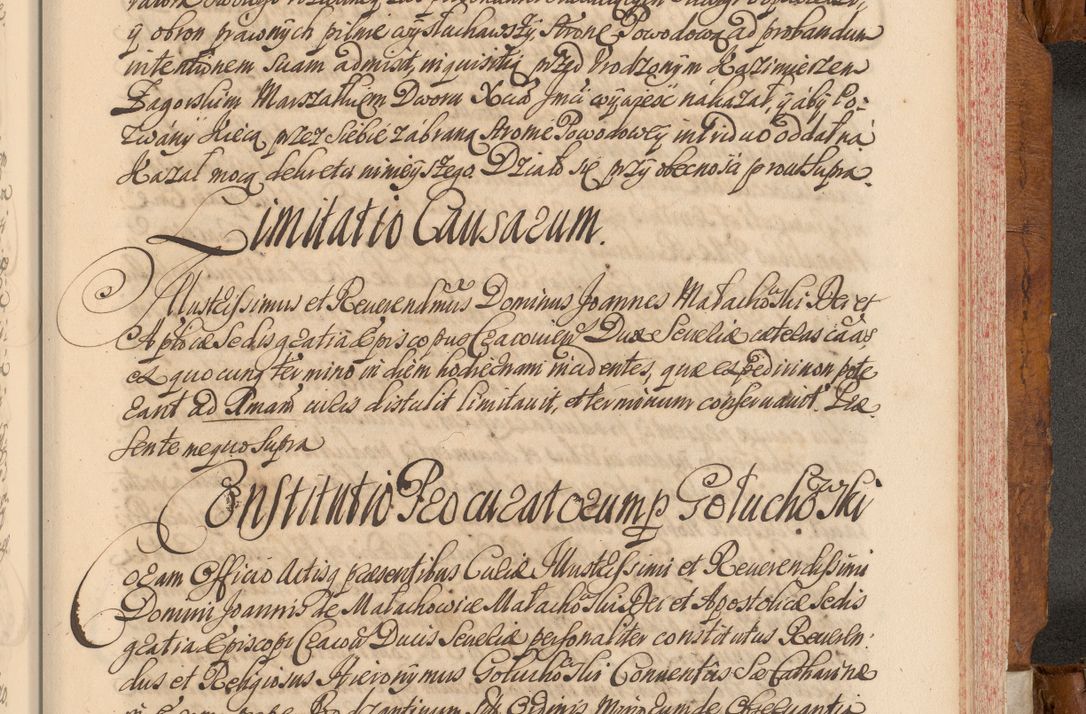 y obron prawnych pilnie wysłuchawszy stronę Powodową ad probandum
intentionem suam admisit, inquisitię przed Urodzonym Kazimierzem
Zagorskim Marszałkiem Dworu Xcia Jmci wywieść nakazał, y aby Po-
zwany Xięcą przez siebie zabraną stronie Powodowey in triduo oddał na-
kazał mocą dekretu ninieyszego. Działo się przy obecności prout supra.
Limitatio Causarum.
Illustrissimus et Reverendmus Dominus Joannes Małachowski Dei et
Aplicæ Sedis gratia Episcopus Cracovien Dux Severiæ cæteras caas
ex quocunq termino in diem hodiernam incidentes, quæ expediri non pote
rant ad Pmam iuris distulit limitavit, et terminum conservavit. Præ-
sente me quo supra
Constitutio Procuratorum p Gołuchowski
Coram Officio Actisq præsentibus Curiæ Illustrissimi et Reverendissimi
Domini Joannis de Małachowice Małachowski Dei et Apostolicæ Sedis
gratia Episcopi Cracov Ducis Severiæ personaliter constitutus Reveren-
dus et Religiosus Hieronymus Gołuchowski Conventus Sæ Catharinæ